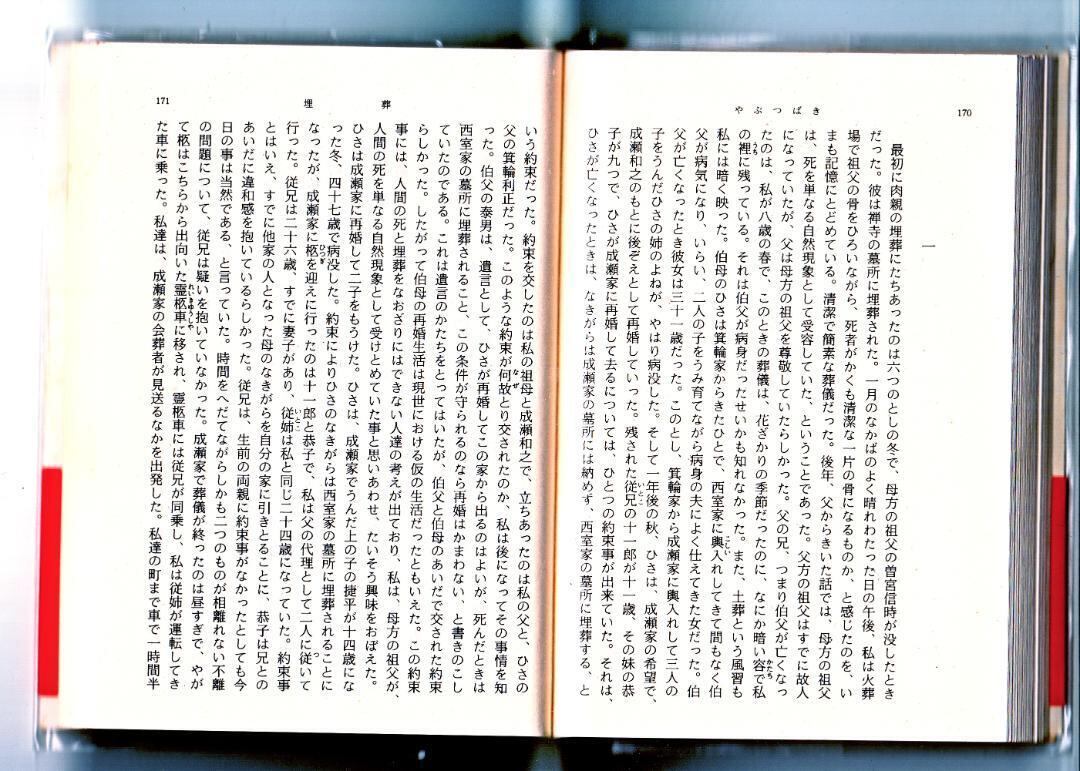 やぶつばき
170
一
最初に肉親の埋葬にたちあったのは六つのとしの冬で、母方の祖父の曽宮信時が没したとき
だった。彼は禅寺の墓所に埋葬された。一月のなかばのよく晴れわたった日の午後、私は火葬
場で祖父の骨をひろいながら、死者がかくも清潔な一片の骨になるものか、と感じたのを、い
まも記憶にとどめている。清潔で簡素な葬儀だった。後年、父からきいた話では、母方の祖父
は、死を単なる自然現象として受容していた、ということであった。父方の祖父はすでに故人
になっていたが、父は母方の祖父を尊敬していたらしかった。父の兄、つまり伯父が亡くなっ
たのは、私が八歳の春で、このときの葬儀は、花ざかりの季節だったのに、なにか暗い容で私
の裡に残っている。それは伯父が病身だったせいかも知れなかった。また、土葬という風習も
私には暗く映った。伯母のひさは箕輪家からきたひとで、西室家に輿入れしてきて間もなく伯
父が病気になり、いらい、二人の子をうみ育てながら病身の夫によく仕えてきた女だった。伯
父が亡くなったとき彼女は三十一歳だった。このとし、箕輪家から成瀬家に輿入れして三人の
子をうんだひさの姉のよねが、やはり病没した。そして一年後の秋、ひさは、成瀬家の希望で、
成瀬和之のもとに後ぞえとして再婚していった。残された従兄の十一郎が十一歳、その妹の恭
子が九つで、ひさが成瀬家に再婚して去るについては、ひとつの約束事が出来ていた。それは、
ひさが亡くなったときは、なきがらは成瀬家の墓所には納めず、西室家の墓所に埋葬する、と
埋葬
171
いう約束だった。約束を交したのは私の祖母と成瀬和之で、立ちあったのは私の父と、ひさの
父の箕輪利正だった。このような約束が何故とり交されたのか、私は後になってその事情を知
った。伯父の泰男は、遺言として、ひさが再婚してこの家から出るのはよいが、死んだときは
西室家の墓所に埋葬されること、この条件が守られるのなら再婚はかまわない、と書きのこし
ていたのである。これは遺言のかたちをとってはいたが、伯父と伯母のあいだで交された約束
らしかった。したがって伯母の再婚生活は現世における仮の生活だったともいえた。この約束
事には、人間の死と埋葬をなおざりにはできない人達の考えが出ており、私は、母方の祖父が、
人間の死を単なる自然現象として受けとめていた事と思いあわせ、たいそう興味をおぼえた。
ひさは成瀬家に再婚して二子をもうけた。ひさは、成瀬家でうんだ上の子の捷平が十四歳にな
った冬、四十七歳で病没した。約束によりひさのなきがらは西室家の墓所に埋葬されることに
なったが、成瀬家に柩を迎えに行ったのは十一郎と恭子で、私は父の代理として二人に従いて
行った。従兄は二十六歳、すでに妻子があり、従姉は私と同じ二十四歳になっていた。約束事
とはいえ、すでに他家の人となった母のなきがらを自分の家に引きとることに、恭子は兄との
あいだに違和感を抱いているらしかった。従兄は、生前の両親に約束事がなかったとしても今
日の事は当然である、と言っていた。時間をへだてながらしかも二つのものが相離れない不離
の問題について、従兄は疑いを抱いていなかった。成瀬家で葬儀が終ったのは昼すぎで、やが
て柩はこちらから出向いた霊柩車に移され、霊柩車には従兄が同乗し、私は従姉が運転してき
た車に乗った。私達は、成瀬家の会葬者が見送るなかを出発した。私達の町まで車で一時間半